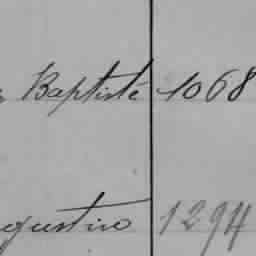 Baptiste 1068
gustin 1294